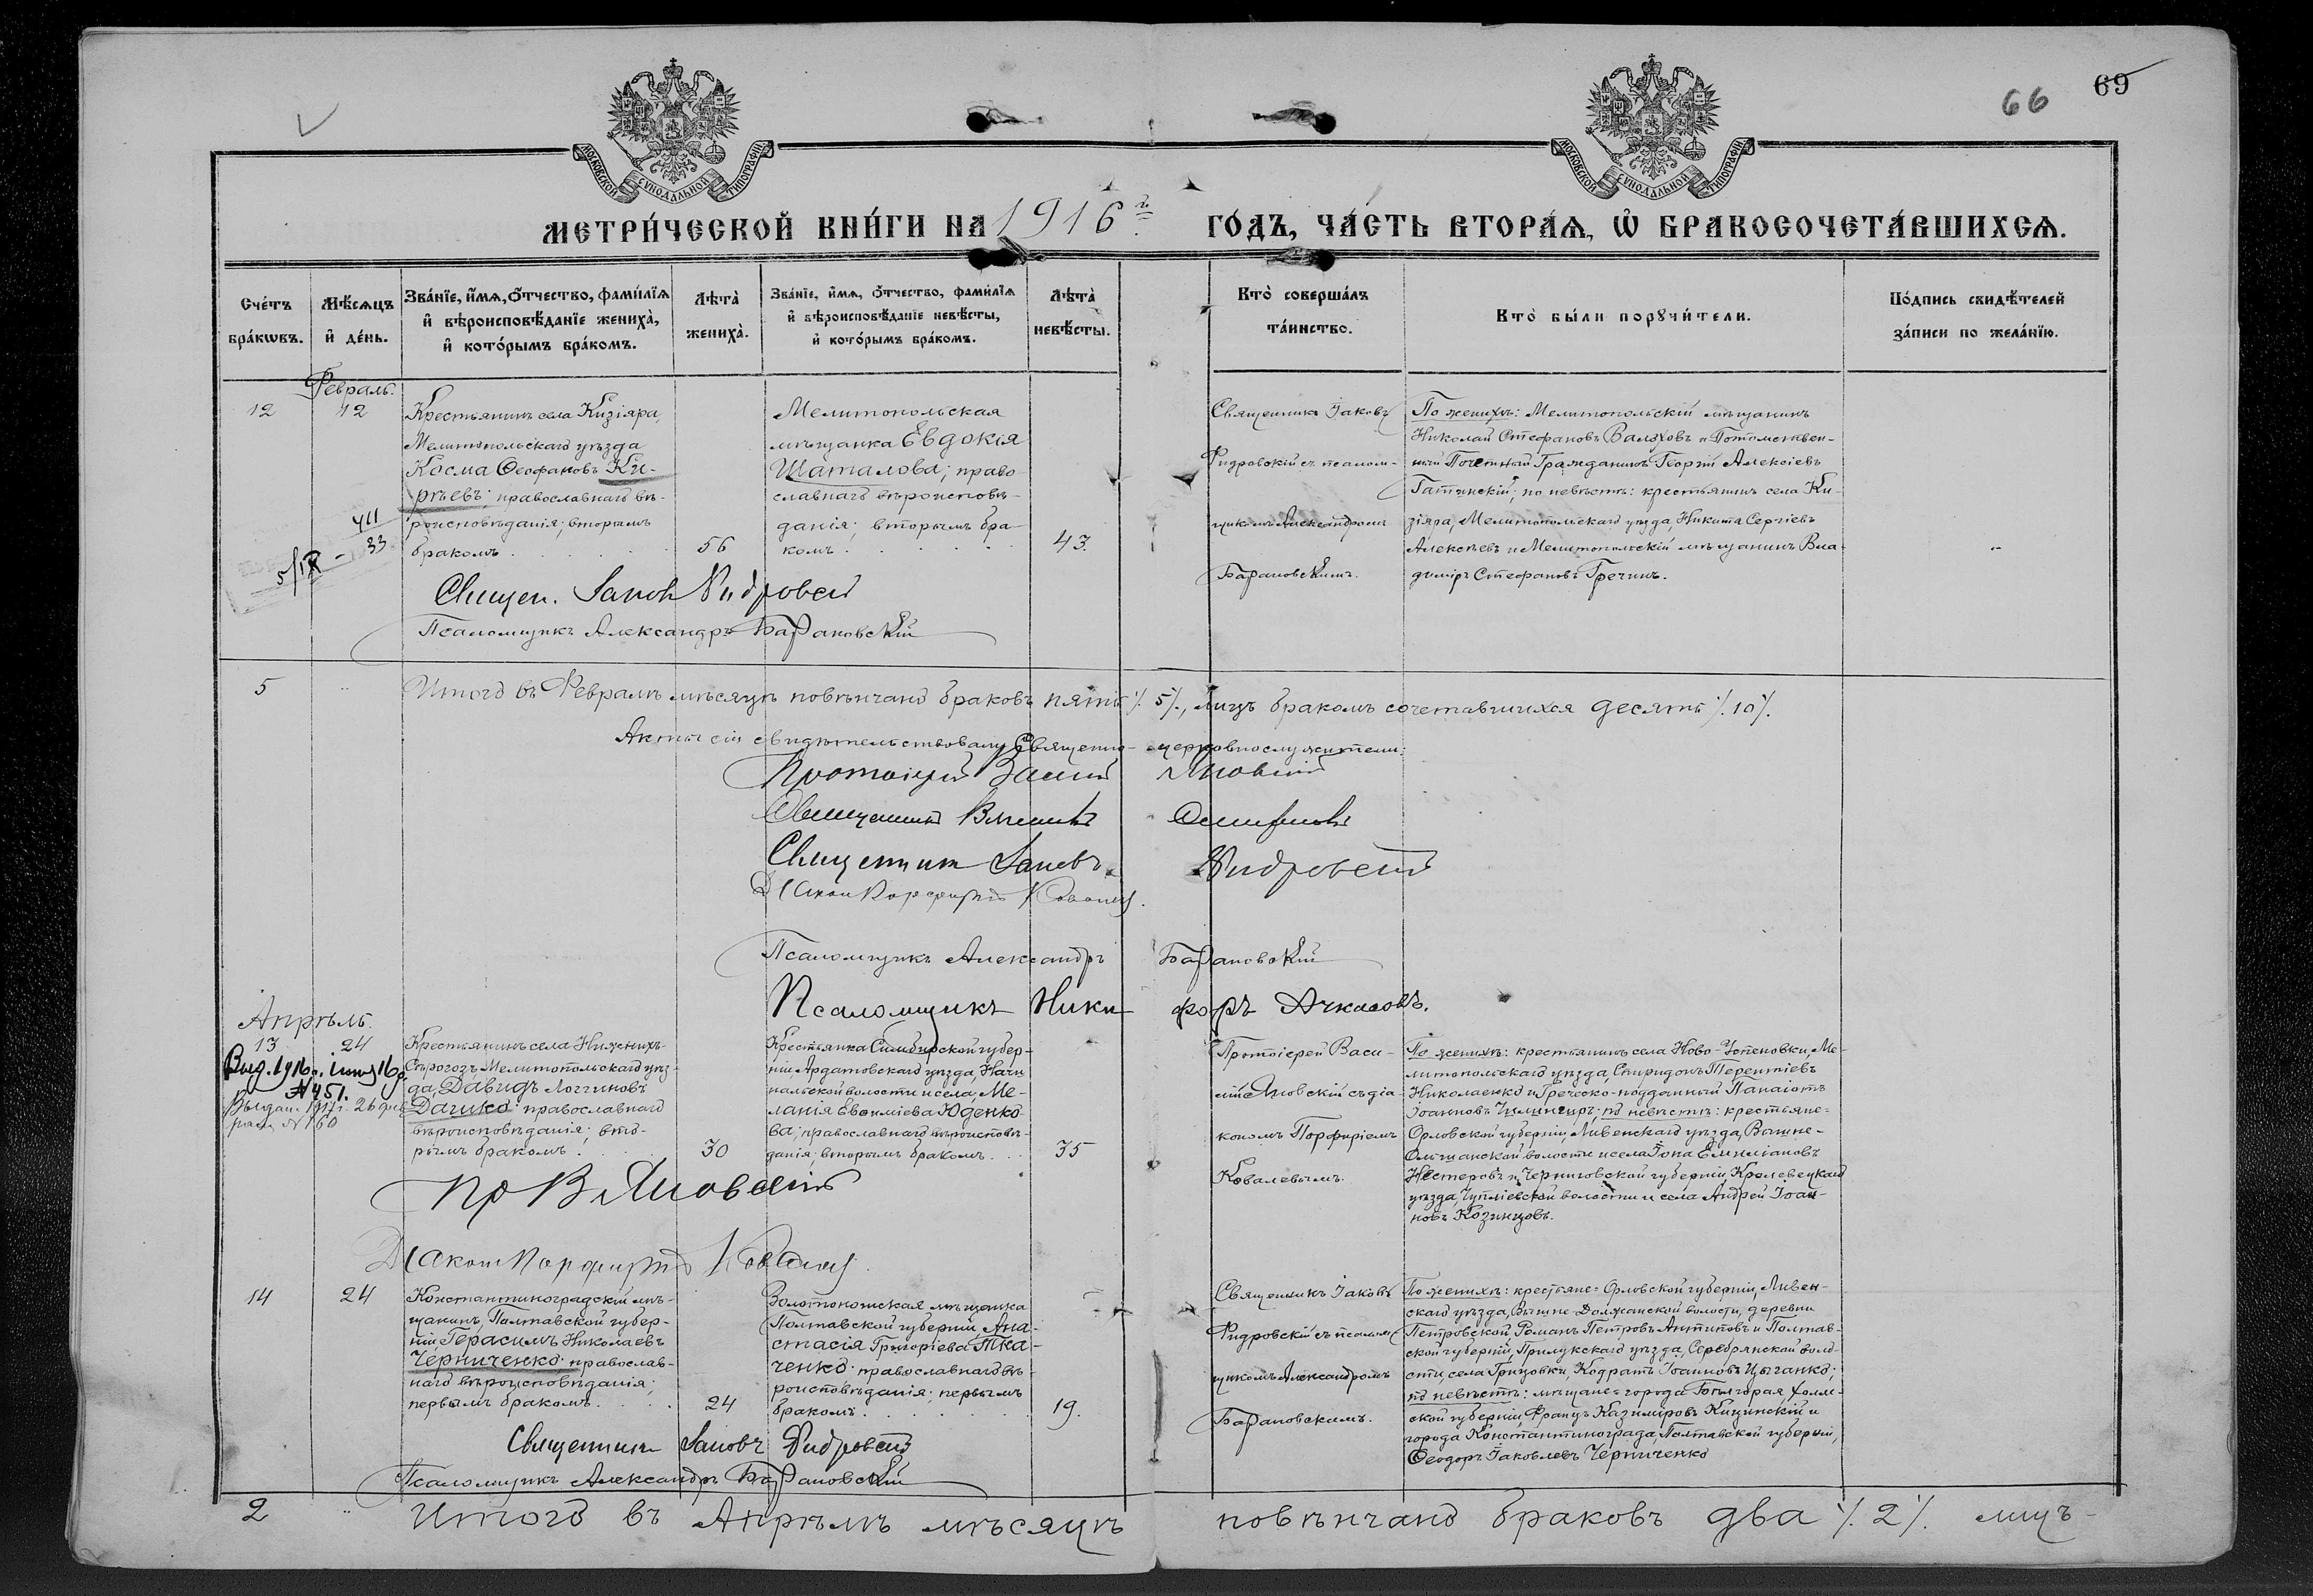 66
69
МОСКОВСКОЙ СѴНОДАЛЬНОЙ ТИПОГРАФІИ
МОСКОВСКОЙ СѴНОДАЛЬНОЙ ТИПОГРАФІИ
МЕТРИ́ЧЕСКОЙ КНИ́ГИ НА 1916 й
ГО́ДЪ, ЧА́СТЬ ВТОРА́Я, Ѽ БРАКОСОЧЕТА́ВШИХСЯ.
Сче́тъ
бра́кωвъ.
Мѣ́сяцъ
и҆ де́нь.
Зва́нїе, и҆́мя, ѻ҆́тчество, фами́лїя
и҆ вѣроисповѣ́данїе жениха̀,
и҆ кото́рымъ бра́комъ.
Лѣта̀
жениха̀.
Зва́нїе, и҆́мя, ѻ҆́тчество, фами́лїя
и҆ вѣроисповѣ́данїе невѣ́сты,
и҆ кото́рымъ бра́комъ.
Лѣта̀
невѣ́сты.
Кто̀ соверша́лъ
та́инство.
Кто̀ бы́ли порꙋчи́тели.
По́дпись свидѣ́телей
за́писи по жела́нїю.
Февраль.
12
12
Крестьянинъ села Кизіяра,
Мелитопольскаго уѣзда
Косма Ѳеофановъ Ки-
рѣевъ; православнаго вѣ-
роисповѣданія; вторымъ
бракомъ.
56
Мелитопольская
мѣщанка Евдокія
Шаталова; право-
славнаго вѣроисповѣ-
данія; вторымъ бра-
комъ.
43.
Священникъ Іаковъ
Фидровскій съ псалом-
щикомъ Александромъ
Барановскимъ.
По женихѣ: Мелитопольскій мѣщанинъ
Николай Стефановъ Валяховъ и Потомствен-
ный Почетный Гражданинъ Георгій Алексіевъ
Гатинскій; по невѣстѣ: крестьянинъ села Ки-
зіяра, Мелитопольскаго уѣзда, Никита Сергіевъ
Алексѣевъ и Мелитопольскій мѣщанинъ Вла-
диміръ Стефановъ Гречинъ.
411
33
5/IX
Священ. Іаковъ Фидровскій
Псаломщикъ Александръ Барановскій
5
Итого въ Февралѣ мѣсяцѣ повѣнчано браковъ пять ./. 5 ./., лицъ бракомъ сочетавшихся десять ./. 10 ./.
Акты сіи свидѣтельствовали Священно-церковнослужители:
Протоіерей Василій Яновскій
Священникъ
Священникъ Іаковъ Фидровскій
Діаконъ Порфирій Ковалевъ.
Псаломщикъ Александръ Барановскій
Псаломщикъ Никифоръ Ачкасовъ.
Апрѣль.
13
24
Выд. 1916 г. іюня 16 д.
№ 451.
Крестьянинъ села Нижнихъ-
Сѣрогозъ, Мелитопольскаго уѣз-
да, Давидъ Логгиновъ
Дацико; православнаго
вѣроисповѣданія; вто-
рымъ бракомъ.
30
Крестьянка Симбирской губер-
ніи Ардатовскаго уѣзда,
волости и села, Ме-
ланія Евѳиміева Юденко-
ва; православнаго вѣроисповѣ-
данія; вторымъ бракомъ.
35
Протоіерей Васи-
лій Яновскій съ діа-
кономъ Порфиріемъ
Ковалевымъ.
По женихѣ: крестьянинъ села Ново-Успеновки, Ме-
литопольскаго уѣзда, Спиридонъ Терентіевъ
Николаенко и Греческо-подданный Панаіотъ
Іоанновъ Чилингиръ; по невѣстѣ: крестьяне=
Орловской губерніи, Ливенскаго уѣзда, Вышне-
Ольшанской волости и села Іона Емиліановъ
Нестеровъ и Черниговской губерніи, Кролевецкаго
уѣзда, волости и села Андрей Іоан-
новъ Козинцовъ.
Пр В Яновскій
Діаконъ Порфирій Ковалевъ.
14
24
Константиноградскій мѣ-
щанинъ, Полтавской губер-
ніи, Герасимъ Николаевъ
Черниченко; православ-
наго вѣроисповѣданія;
первымъ бракомъ.
24
Золотоношская мѣщанка
Полтавской губерніи, Ана-
стасія Григоріева Тка-
ченко; православнаго вѣ-
роисповѣданія; первымъ
бракомъ.
19.
Священникъ Іаковъ
Фидровскій съ псалом-
щикомъ Александромъ
Барановскимъ.
По женихѣ: крестьяне= Орловской губерніи, Ливен-
скаго уѣзда, Вышне-Должанской волости, деревни
Петровской, Романъ Петровъ Антиповъ и Полтав-
ской губерніи, Прилукскаго уѣзда, Серебрянской воло-
сти, села Грицовки, Кодратъ Іоанновъ Цыганко;
по невѣстѣ: мѣщане= города Бѣлгорая Холм-
ской губерніи, Францъ Казиміровъ Кицинскій и
города Константинограда, Полтавской губерніи,
Ѳеодоръ Іаковлевъ Черниченко
Священникъ Іаковъ Фидровскій
Псаломщикъ Александръ Барановскій
2
Итого въ Апрѣлѣ мѣсяцѣ повѣнчано браковъ два ./. 2 ./. лицъ-